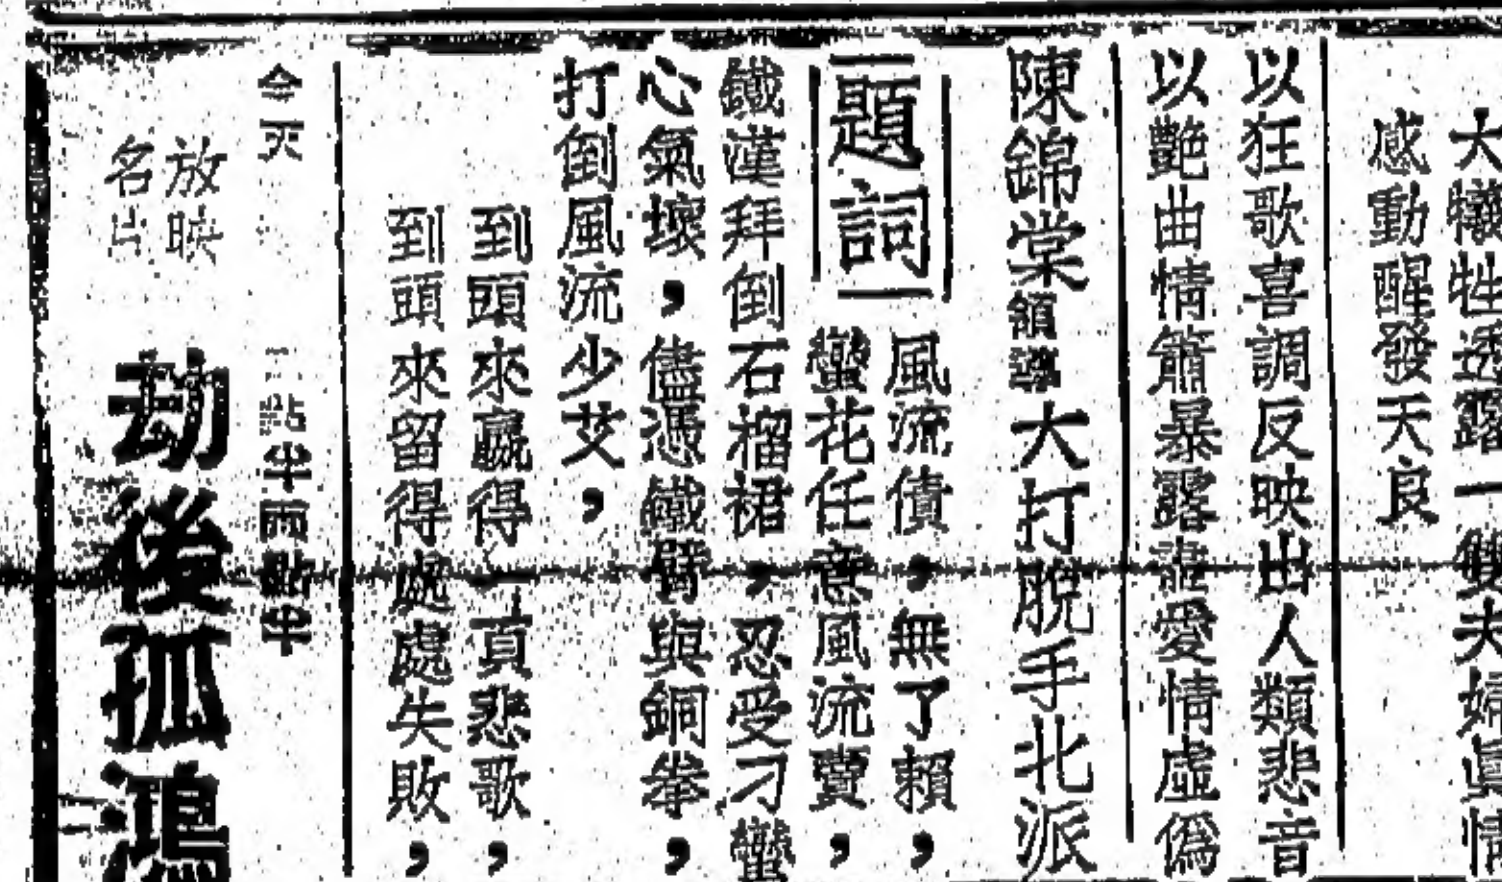 大犧牲透露一雙夫婦眞情
感動醒發天良
以狂歌喜調反映出人類悲音
以艷曲情簫暴露盡愛情虛僞
陳錦棠領導大打脫手北派
題詞
風流債，無了賴，
蠻花任意風流賣，
鐵漢拜倒石榴裙，忍受刁蠻
心氣壞，儘憑鐵臂與銅拳，
打倒風流少艾，
到頭來贏得一頁悲歌，
到頭來留得處處失敗，
今天
二點半兩點半
放映
名片
劫後孤鴻